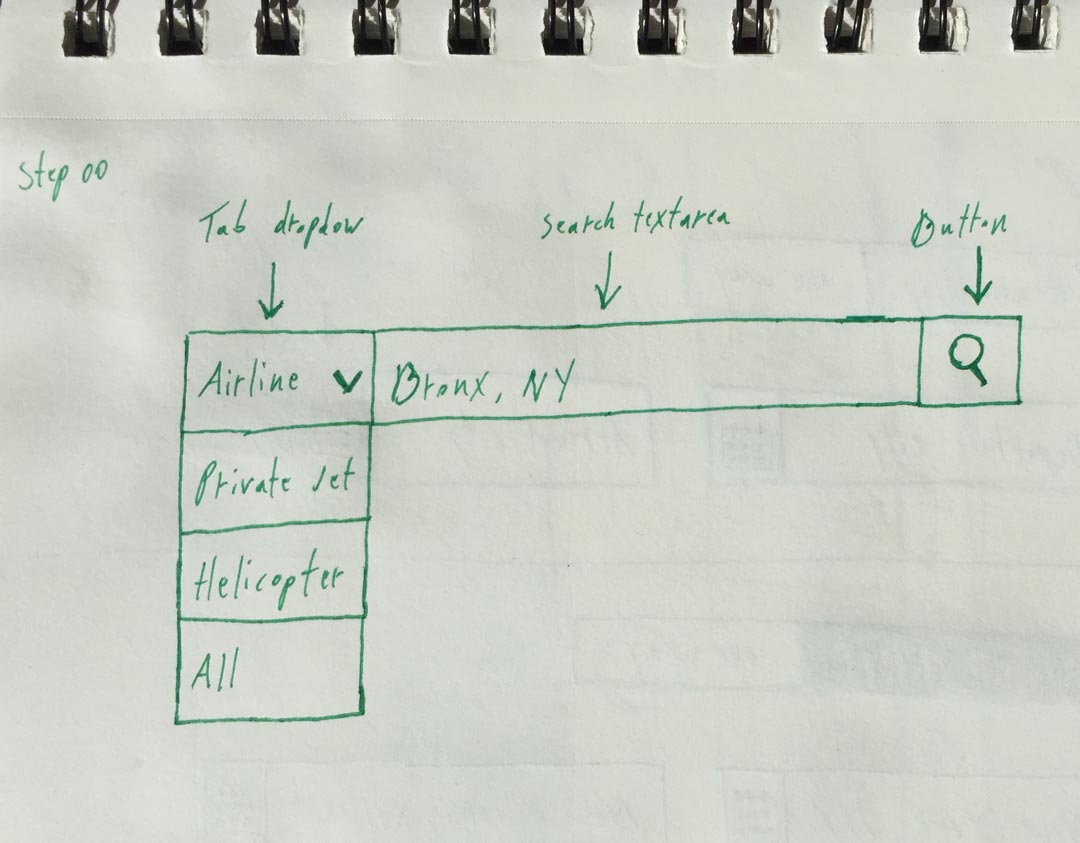 Step 00
Tab dropdow
search textarea
Button
Airline
Bronx, NY
Private Jet
Helicopter
All